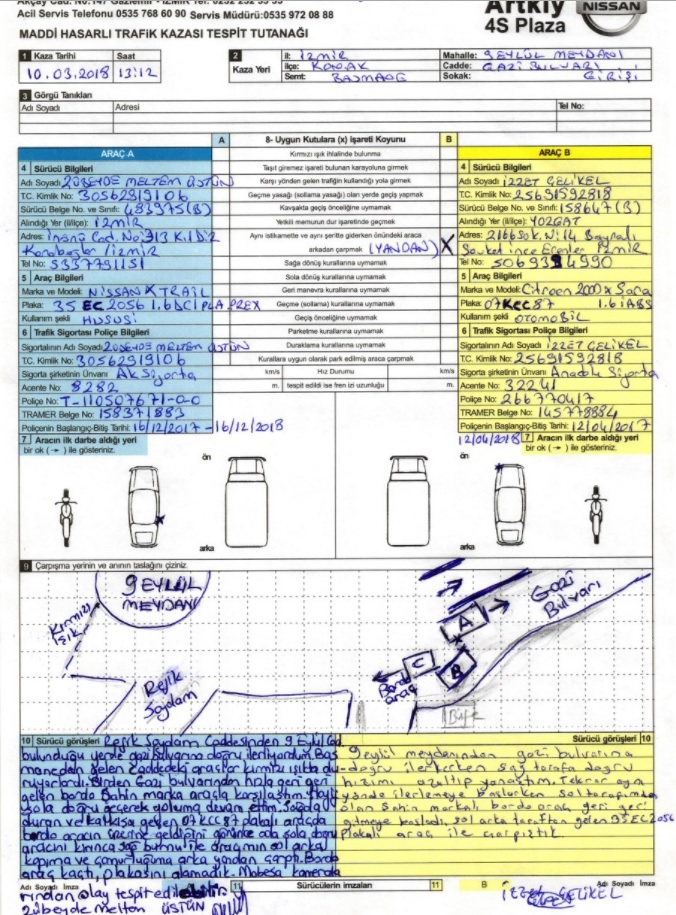 Akçay Cad. No:147 Gaziemir - İZMİR Tel: 0232
Acil Servis Telefonu 0535 768 60 90 Servis Müdürü:0535 972 08 88
Artkıy
4S Plaza
NISSAN
MADDİ HASARLI TRAFİK KAZASI TESPİT TUTANAĞI
1 Kaza Tarihi Saat
10.03.2018 13:12
2 Kaza Yeri
İl: İZMİR
İlçe: KONAK
Semt: BASMANE
Mahalle: 9 EYLÜL MEYDANI
Cadde: GAZİ BULVARI
Sokak: GİRİŞİ
3 Görgü Tanıkları
Adı Soyadı Adresi Tel No:
ARAÇ A
4 Sürücü Bilgileri
Adı Soyadı ZÜBEYDE MELTEM ÜSTÜN
T.C. Kimlik No: 30562919106
Sürücü Belge No. ve Sınıfı: 483975(B)
Alındığı Yer (il/ilçe): İZMİR
Adres: İnönü Cad. No:313 K.1 D:2
Karabağlar İzmir
Tel No: 5337791151
5 Araç Bilgileri
Marka ve Model: NİSSAN XTRAİL
Plaka: 35 EC 2056 1.6 DCİ PLA PREX
Kullanım şekli HUSUSİ
6 Trafik Sigortası Poliçe Bilgileri
Sigortalının Adı Soyadı ZÜBEYDE MELTEM ÜSTÜN
T.C. Kimlik No: 30562919106
Sigorta şirketinin Ünvanı Ak Sigorta
Acente No: 8282
Poliçe No: T-110507671-0-0
TRAMER Belge No: 158371883
Poliçenin Başlangıç-Bitiş Tarihi: 16/12/2017 - 16/12/2018
7 Aracın ilk darbe aldığı yeri
bir ok (→) ile gösteriniz.
A 8- Uygun Kutulara (x) İşareti Koyunu B
Kırmızı ışık ihlalinde bulunma
Taşıt giremez işareti bulunan karayoluna girmek
Karşı yönden gelen trafiğin kullandığı yola girmek
Geçme yasağı (sollama yasağı) olan yerde geçiş yapmak
Kavşakta geçiş önceliğine uymamak
Yetkili memurun dur işaretinde geçmek
Aynı istikamette ve aynı şeritte giderken önündeki araca
arkadan çarpmak (YANDAN) X
Sağa dönüş kurallarına uymamak
Sola dönüş kurallarına uymamak
Geri manevra kurallarına uymamak
Geçme (sollama) kurallarına uymamak
Geçiş önceliğine uymamak
Parketme kurallarına uymamak
Duraklama kurallarına uymamak
Kurallara uygun olarak park edilmiş araca çarpmak
km/s Hız Durumu km/s
m. tespit edildi ise fren izi uzunluğu m.
ARAÇ B
4 Sürücü Bilgileri
Adı Soyadı İZZET ÇELİKEL
T.C. Kimlik No: 25691592818
Sürücü Belge No. ve Sınıfı: 158647(B)
Alındığı Yer (il/ilçe): YOZGAT
Adres: 2166 Sok. N:14 Bayraklı
İZMİR
Tel No:
5 Araç Bilgileri
Marka ve Model: Citroen 2000 x Sara
Plaka: 07 KCC 87 1.6 i ABS
Kullanım şekli OTOMOBİL
6 Trafik Sigortası Poliçe Bilgileri
Sigortalının Adı Soyadı İZZET ÇELİKEL
T.C. Kimlik No: 25691592818
Sigorta şirketinin Ünvanı: Anadolu Sigorta
Acente No: 32241
Poliçe No: 266770417
TRAMER Belge No: 145778884
Poliçenin Başlangıç-Bitiş Tarihi: 12/04/2017
12/04/2018 7 Aracın ilk darbe aldığı yeri
bir ok (→) ile gösteriniz.
ön ön
arka arka
9 Çarpışma yerinin ve anının taslağını çiziniz.
9 EYLÜL
MEYDANI
Kırmızı
Işık
Refik
Saydam
A
B
C
Bordo
araç
Gazi
Bulvarı
Büfe
10 Sürücü görüşleri Refik Saydam Caddesinden 9 Eylül Cad.
bulunduğu yerde gazi bulvarına doğru ilerliyordum. Bas
maneden gelen Caddedeki araçlar kırmızı ışıkta du
ruyorlardı. Birden Gazi bulvarından hızla geri geri
gelen bordo Şahin marka araçla karşılaştım. Hafif
sola doğru geçerek yoluma devam ettim. Sağda
duran ve kalkışa geçen 07 KCC 87 plakalı araçda
bordo aracın üzerine geldiğini görünce oda sola doğru
aracını kırınca sağ burnu ile aracımın sol arkal
kapıma ve çamurluğuma arka yandan çarptı. Bordo
araç kaçtı, plakasını alamadık. Mobesa kamerala
rından olay tespit edilebilir
Sürücü görüşleri 10
9 eylül meydanından gazi bulvarına
doğru ilerlerken sağ tarafa doğru
hızımı azaltıp yanaştım. Tekrar aynı
yönde ilerlemeye başlarken sol tarafımda
olan Şahin markalı bordo araç geri geri
gitmeye başladı, sol arka taraftan gelen 35 EC 2056
Plakalı araç ile çarpıştık
Adı Soyadı İmza 11 Sürücülerin imzaları 11 B Adı Soyadı İmza
Zübeyde Meltem ÜSTÜN
İZZET ÇELİKEL